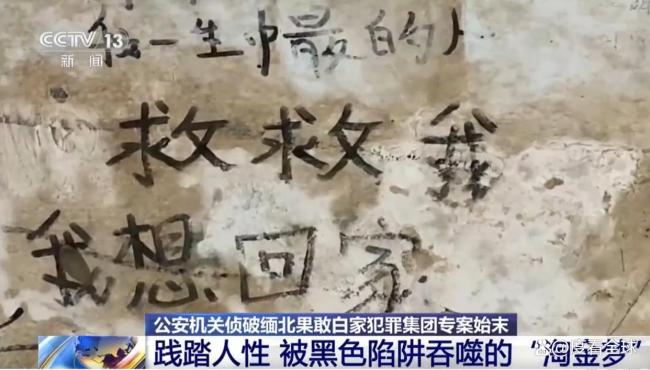 CCTV 13
新闻
我一生中最的人
救救我
我想回家
公安机关侦破缅北果敢白家犯罪集团专案始末
践踏人性 被黑色陷阱吞噬的“淘金梦”